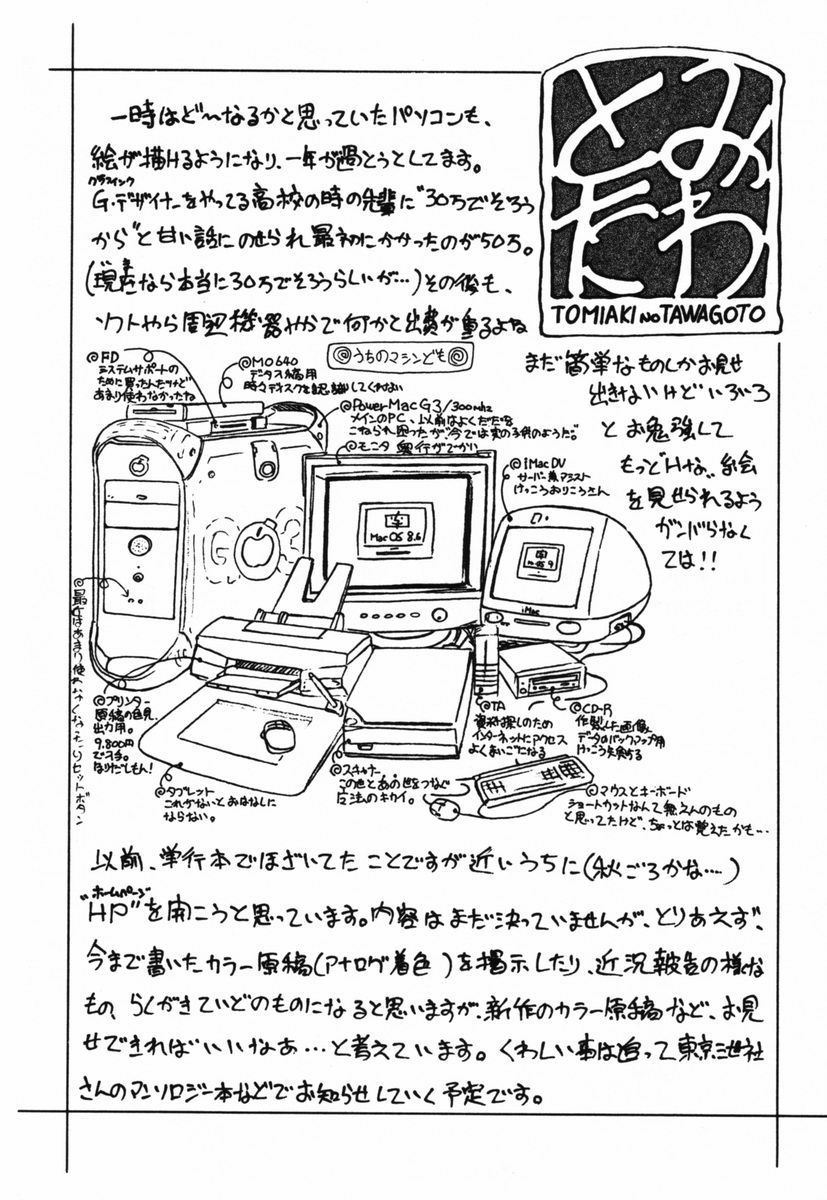 とみ
たわ
TOMIAKI NO TAWAGOTO
一時はど〜なるかと思っていたパソコンも、
絵が描けるようになり、一年が過とうとしてます。
グラフィック
G・デザイナーをやってる高校の時の先輩に"30万でそろう
から"と甘い話にのせられ最初にかかったのが50万。
(現在なら本当に30万でそろうらしいが…)その後も、
ソフトやら周辺機器やかで何かと出費が重るよね
◎うちのマシンども◎
◎FD
システムサポートの
ために買ったんだけど
あまり使わなかったね
◎MO640
データ入稿用
時々ディスクを認識してくれない
◎PowerMacG3/300mhz
メインのPC、以前はよくだだを
こねられ困ったが今では実の子供のようだ。
◎モニタ 奥行がでかい
◎iMacDV
サーバー兼アシスト
けっこうおりこうさん
Mac OS 8.6
OS 9
iMac
G3
まだ簡単なものしかお見せ
出きないけどいろいろ
とお勉強して
もっどHな〟絵
を見せられるよう
ガンバらなく
ては!!
◎最近はあまり使わなくなったリセットボタン
◎プリンター
原稿の色見
出力用。
9,800円
で入手。
ほりだしもん!
◎タブレット
これがないとおはなしに
ならない。
◎スキャナー
この世とあの世をつなぐ
魔法のキカイ。
◎TA
資料探しのため
インターネットにアクセス
よくまいごになる
◎CD-R
作製した画像
データのバックアップ用
けっこう失敗する
◎マウスとキーボード
ショートカットなんて覚えんのもの
と思ってたけど、ちょっとは覚えたかも…
以前、単行本でほざいてたことですが近いうちに(秋ごろかな…)
ホームページ
"HP"を開こうと思っています。内容はまだ決っていませんが、とりあえず、
今まで書いたカラー原稿(アナログ着色)を掲示したり、近況報告の様な
もの、らくがきていどのものになると思いますが、新作のカラー原稿など、お見
せできればいいなぁ…と考えています。くわしい事は追って東京三世社
さんのアンソロジー本などでお知らせしていく予定です。